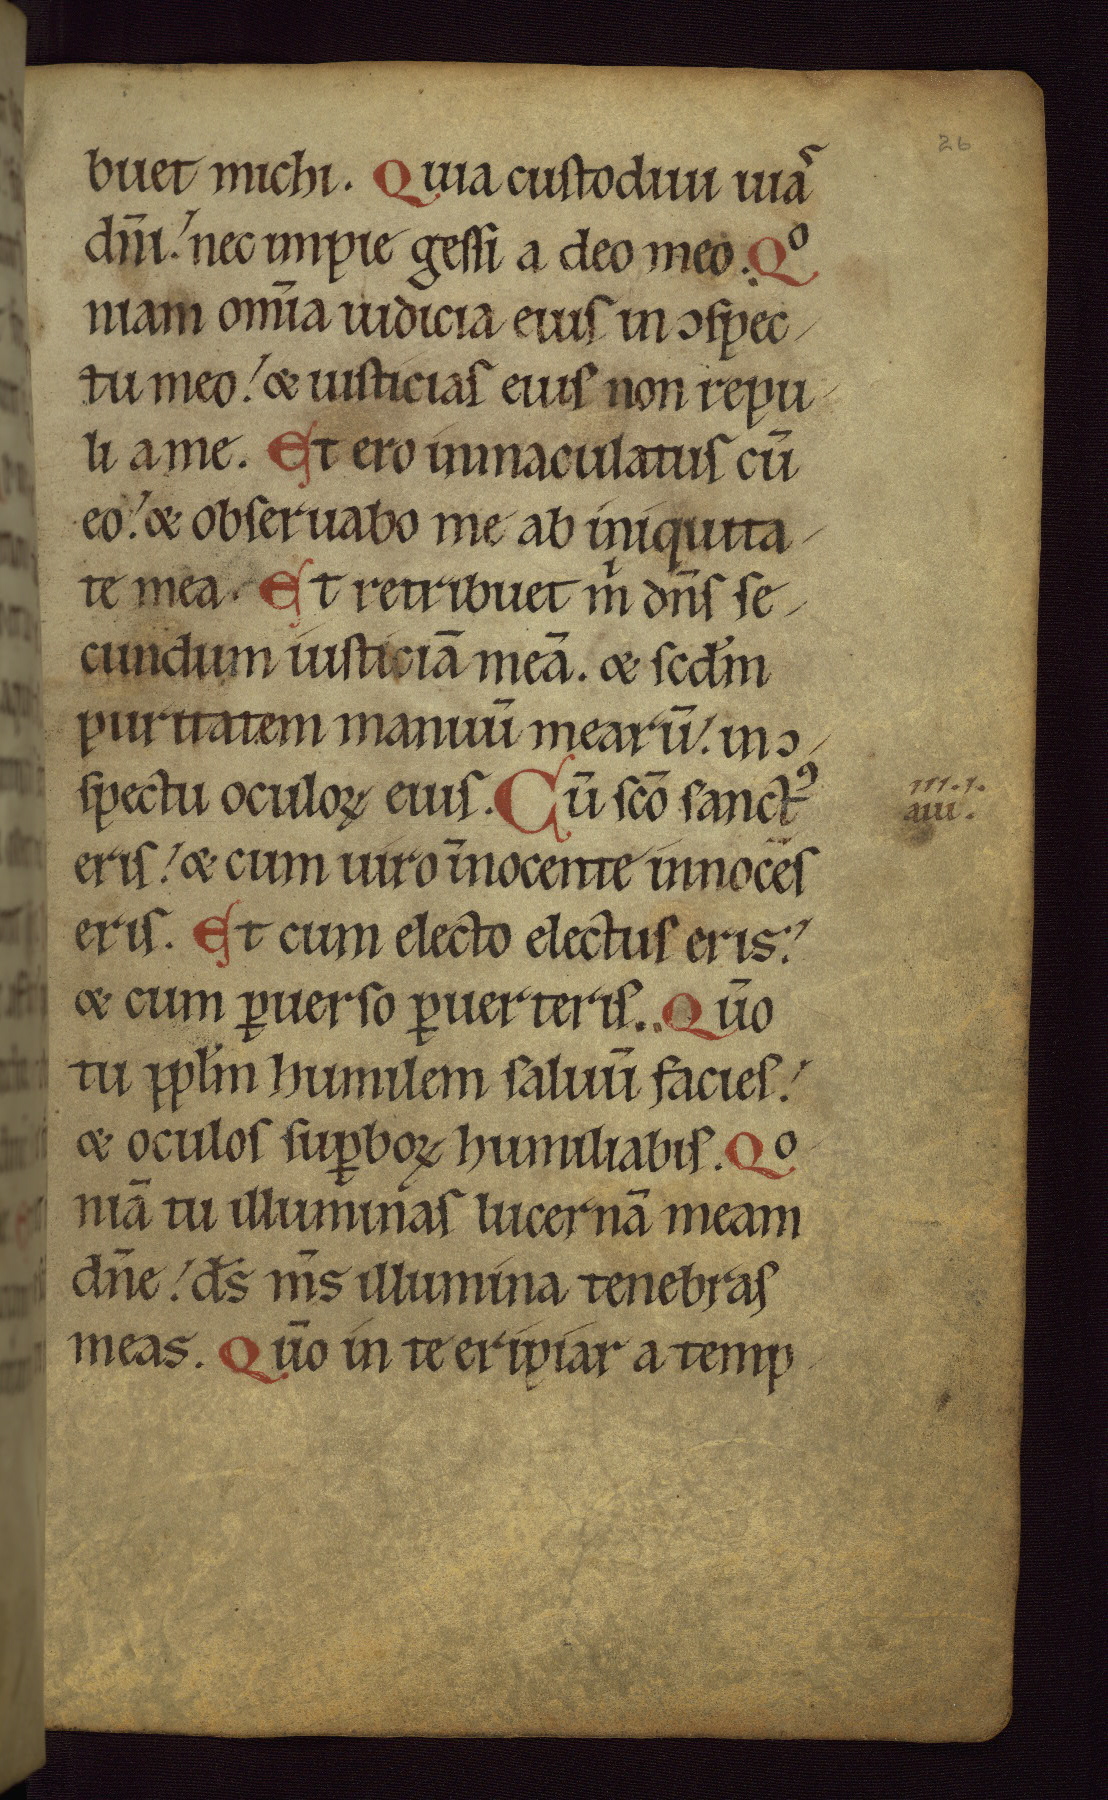 26
buet michi. Quia custodiui uiaˢ
dn̄i! nec impie gessi a deo meo. Qº
niam om̄ia iudicia eius in ɔspec-
tu meo! & iusticias eius non repu-
li a me. Et ero inmaculatus cū
eo! & obseruabo me ab iniquita-
te mea. Et retribuet m̍ dn̄s se-
cundum iusticiā meā. & scd̄m
puritatem manuū mearū! in ɔ-
spectu oculoꝝ eius. Cū sc̄o sanctꝰ
eris! & cum uiro īnocente innocēs
eris. Et cum electo electus eris!
& cum ꝑuerso ꝑuerteris. Qūo
tu ppl̄m humilem saluū facies!
& oculos suꝑboꝝ humiliabis. Qº
niā tu illuminas lucernā meam
dn̄e! ds̄ ms̄ illumina tenebras
meas. Qūo in te eripiar a temp-